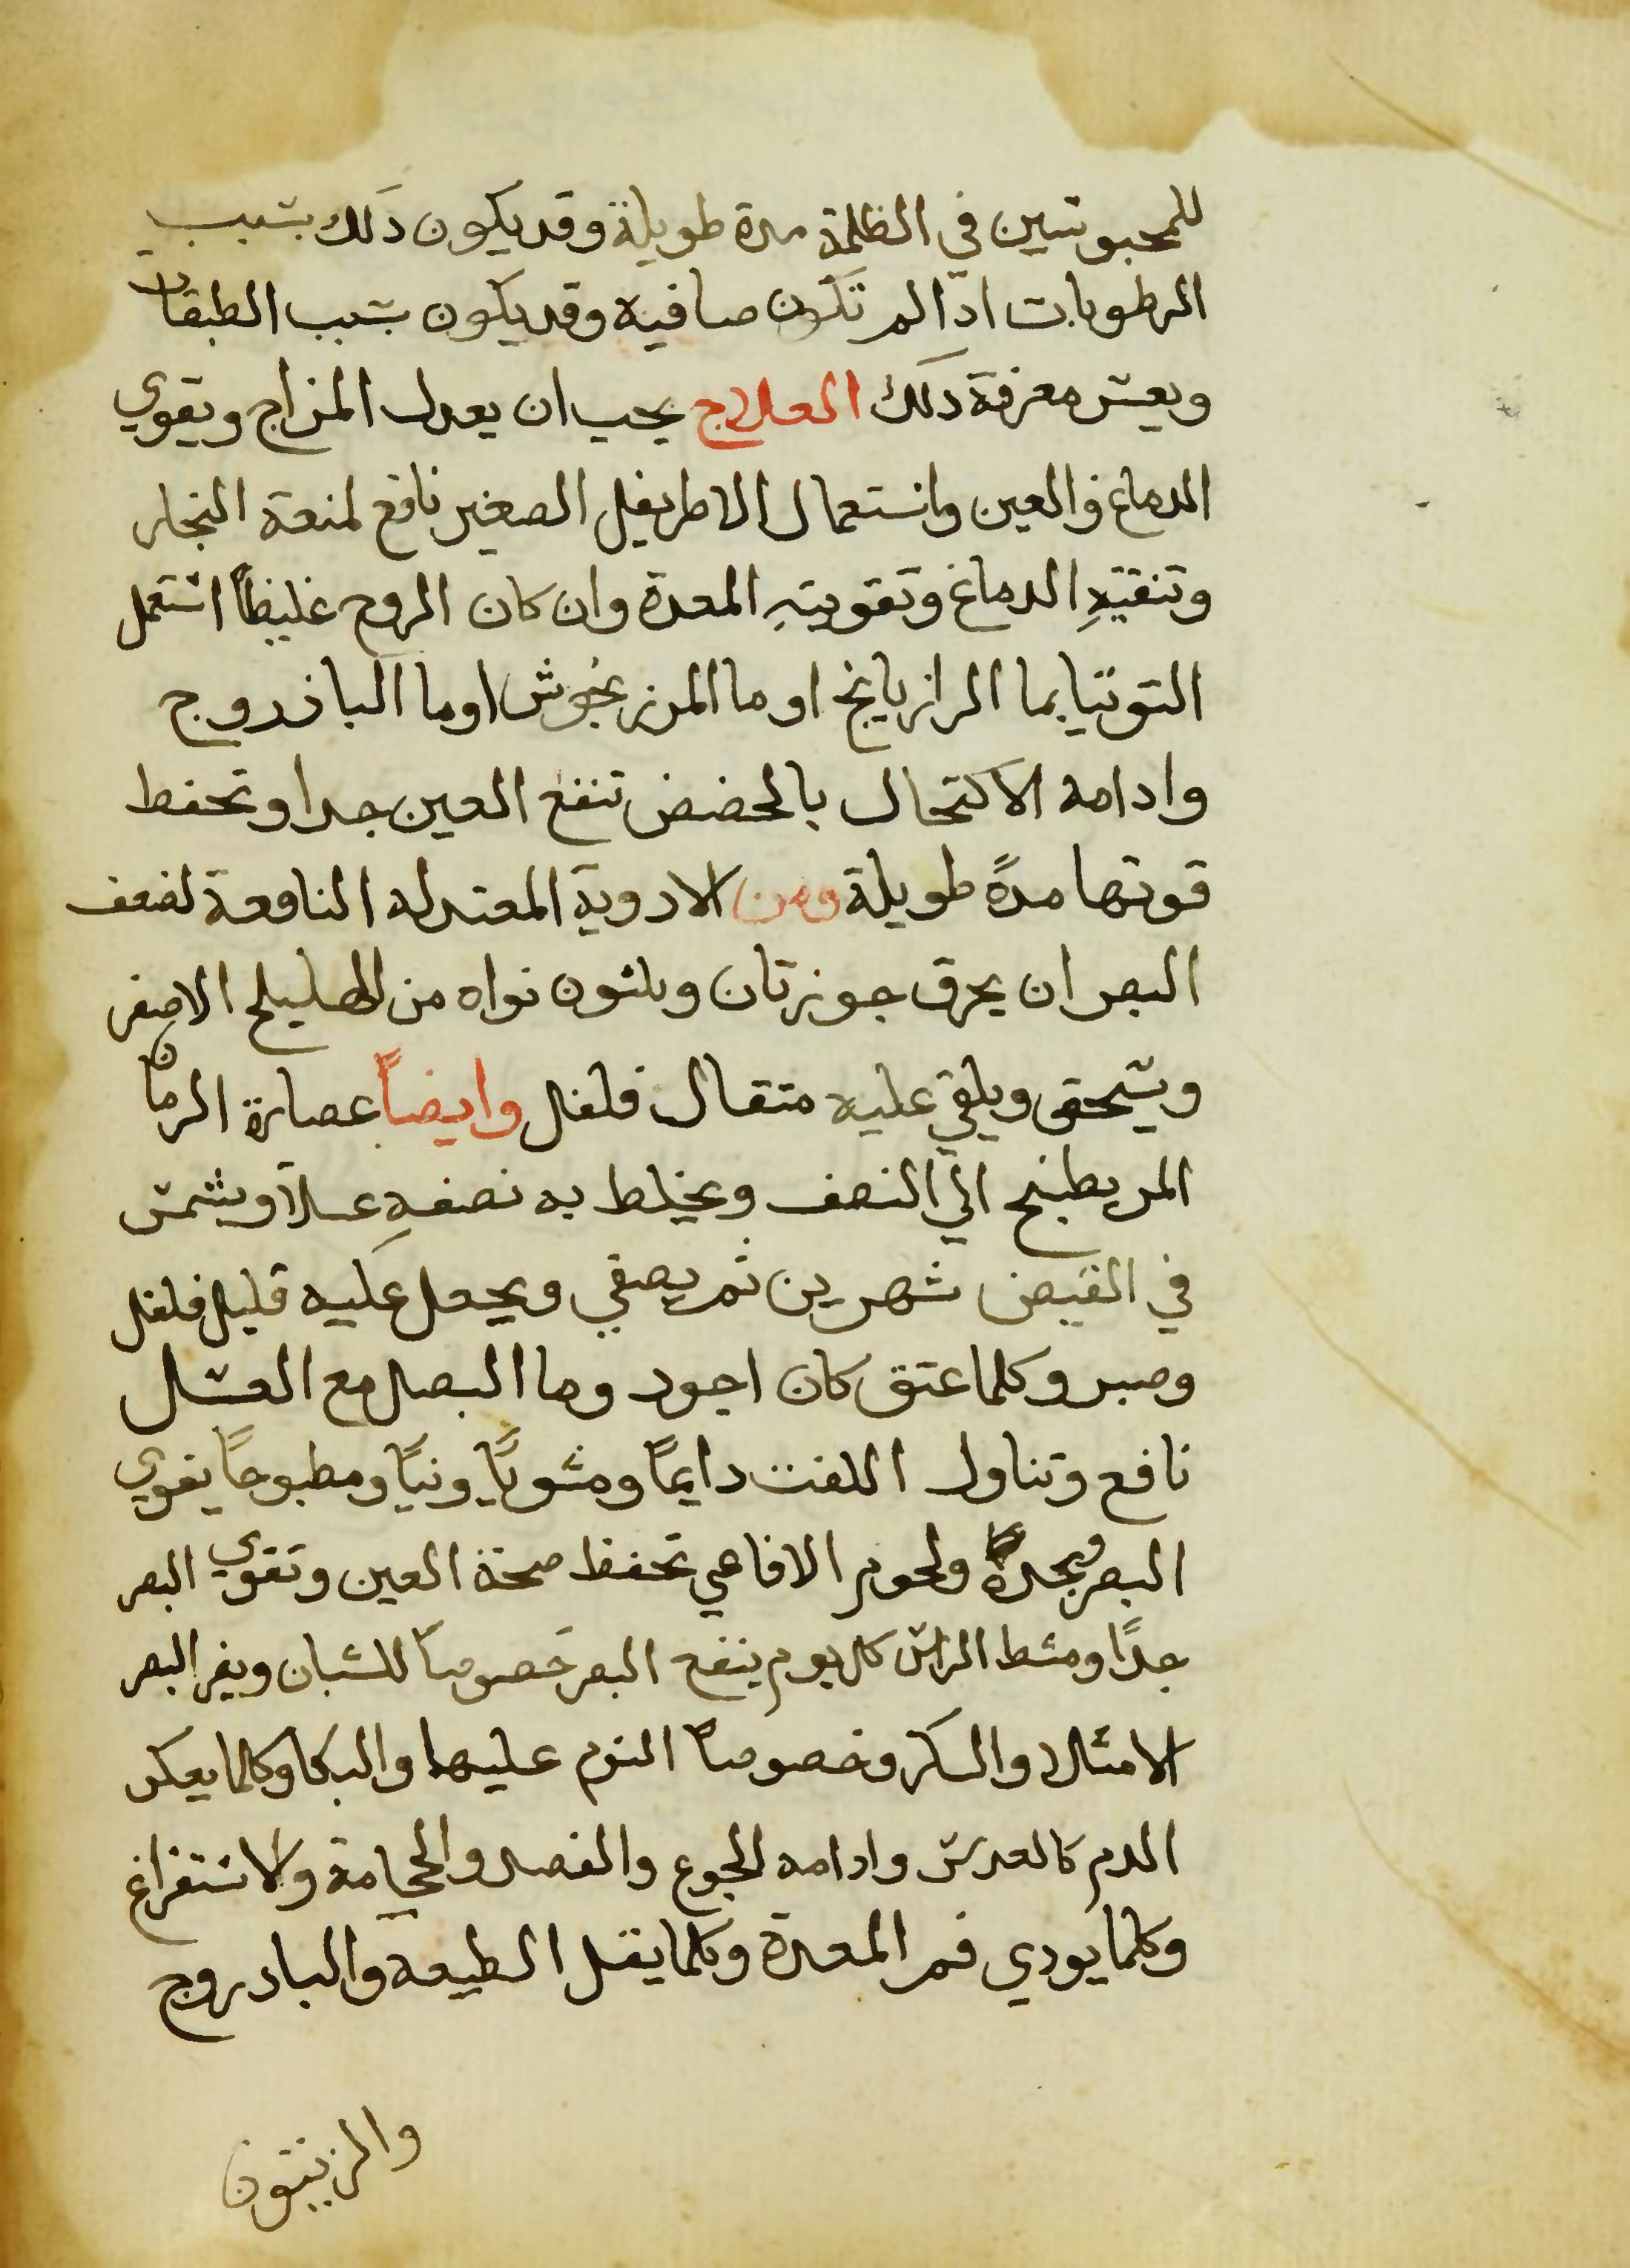 للمحبوسين في الظلمة مدة طويلة وقد يكون ذلك بسبب
الرطوبات اذا لم تكون صافيه وقد يكون بسبب الطبقات
ويعسر معرفة ذلك العلاج يجب ان يعدل المزاج ويقوي
الدماغ والعين واستعمال الاطريفل الصغير نافع لمنعه البخار
وتنقيةِ الدماغ وتقويتهِ المعدة وان كان الروح غليظاً استعمل
التوتيا بما الرازيانج او ما المرزنجوش او ما الباذروج
وادامه الاكتحال بالحضض تنفع العين جدا وتحفظ
قوتها مدةً طويلة ومن الادوية المعتدله النافعة لضعف
البصر ان يحرق جوزتان وثلثون نواه من الهليلج الاصفر
ويسحق ويلقي عليه مثقال فلفل وايضاً عصارة الرمان
المر يطبخ الي النصف ويخلط به نصفهِ عسلاً ويشمس
في القيض شهرين ثم يصفي ويجعل عليه قليل فلفل
وصبر وكلما عتق كان اجود وما البصل مع العسل
نافع وتناول اللفت دايماً ومشوياً ونياً ومطبوخاً يقوي
البصر ويحده ولحوم الافاعي تحفظ صحة العين وتقوي البصر
جداً ومشط الراس كل يوم ينفع البصر خصوصاً للشبان ويضر البصر
الامتلا والسكر وخصوصاً النوم عليها والبكا وكلما يعكر
الدم كالعدس وادامه الجوع والفصد والحجامة والاستفراغ
وكلما يودي فم المعدة وكلما يقل الطبيعه والبادروج
والزيتون